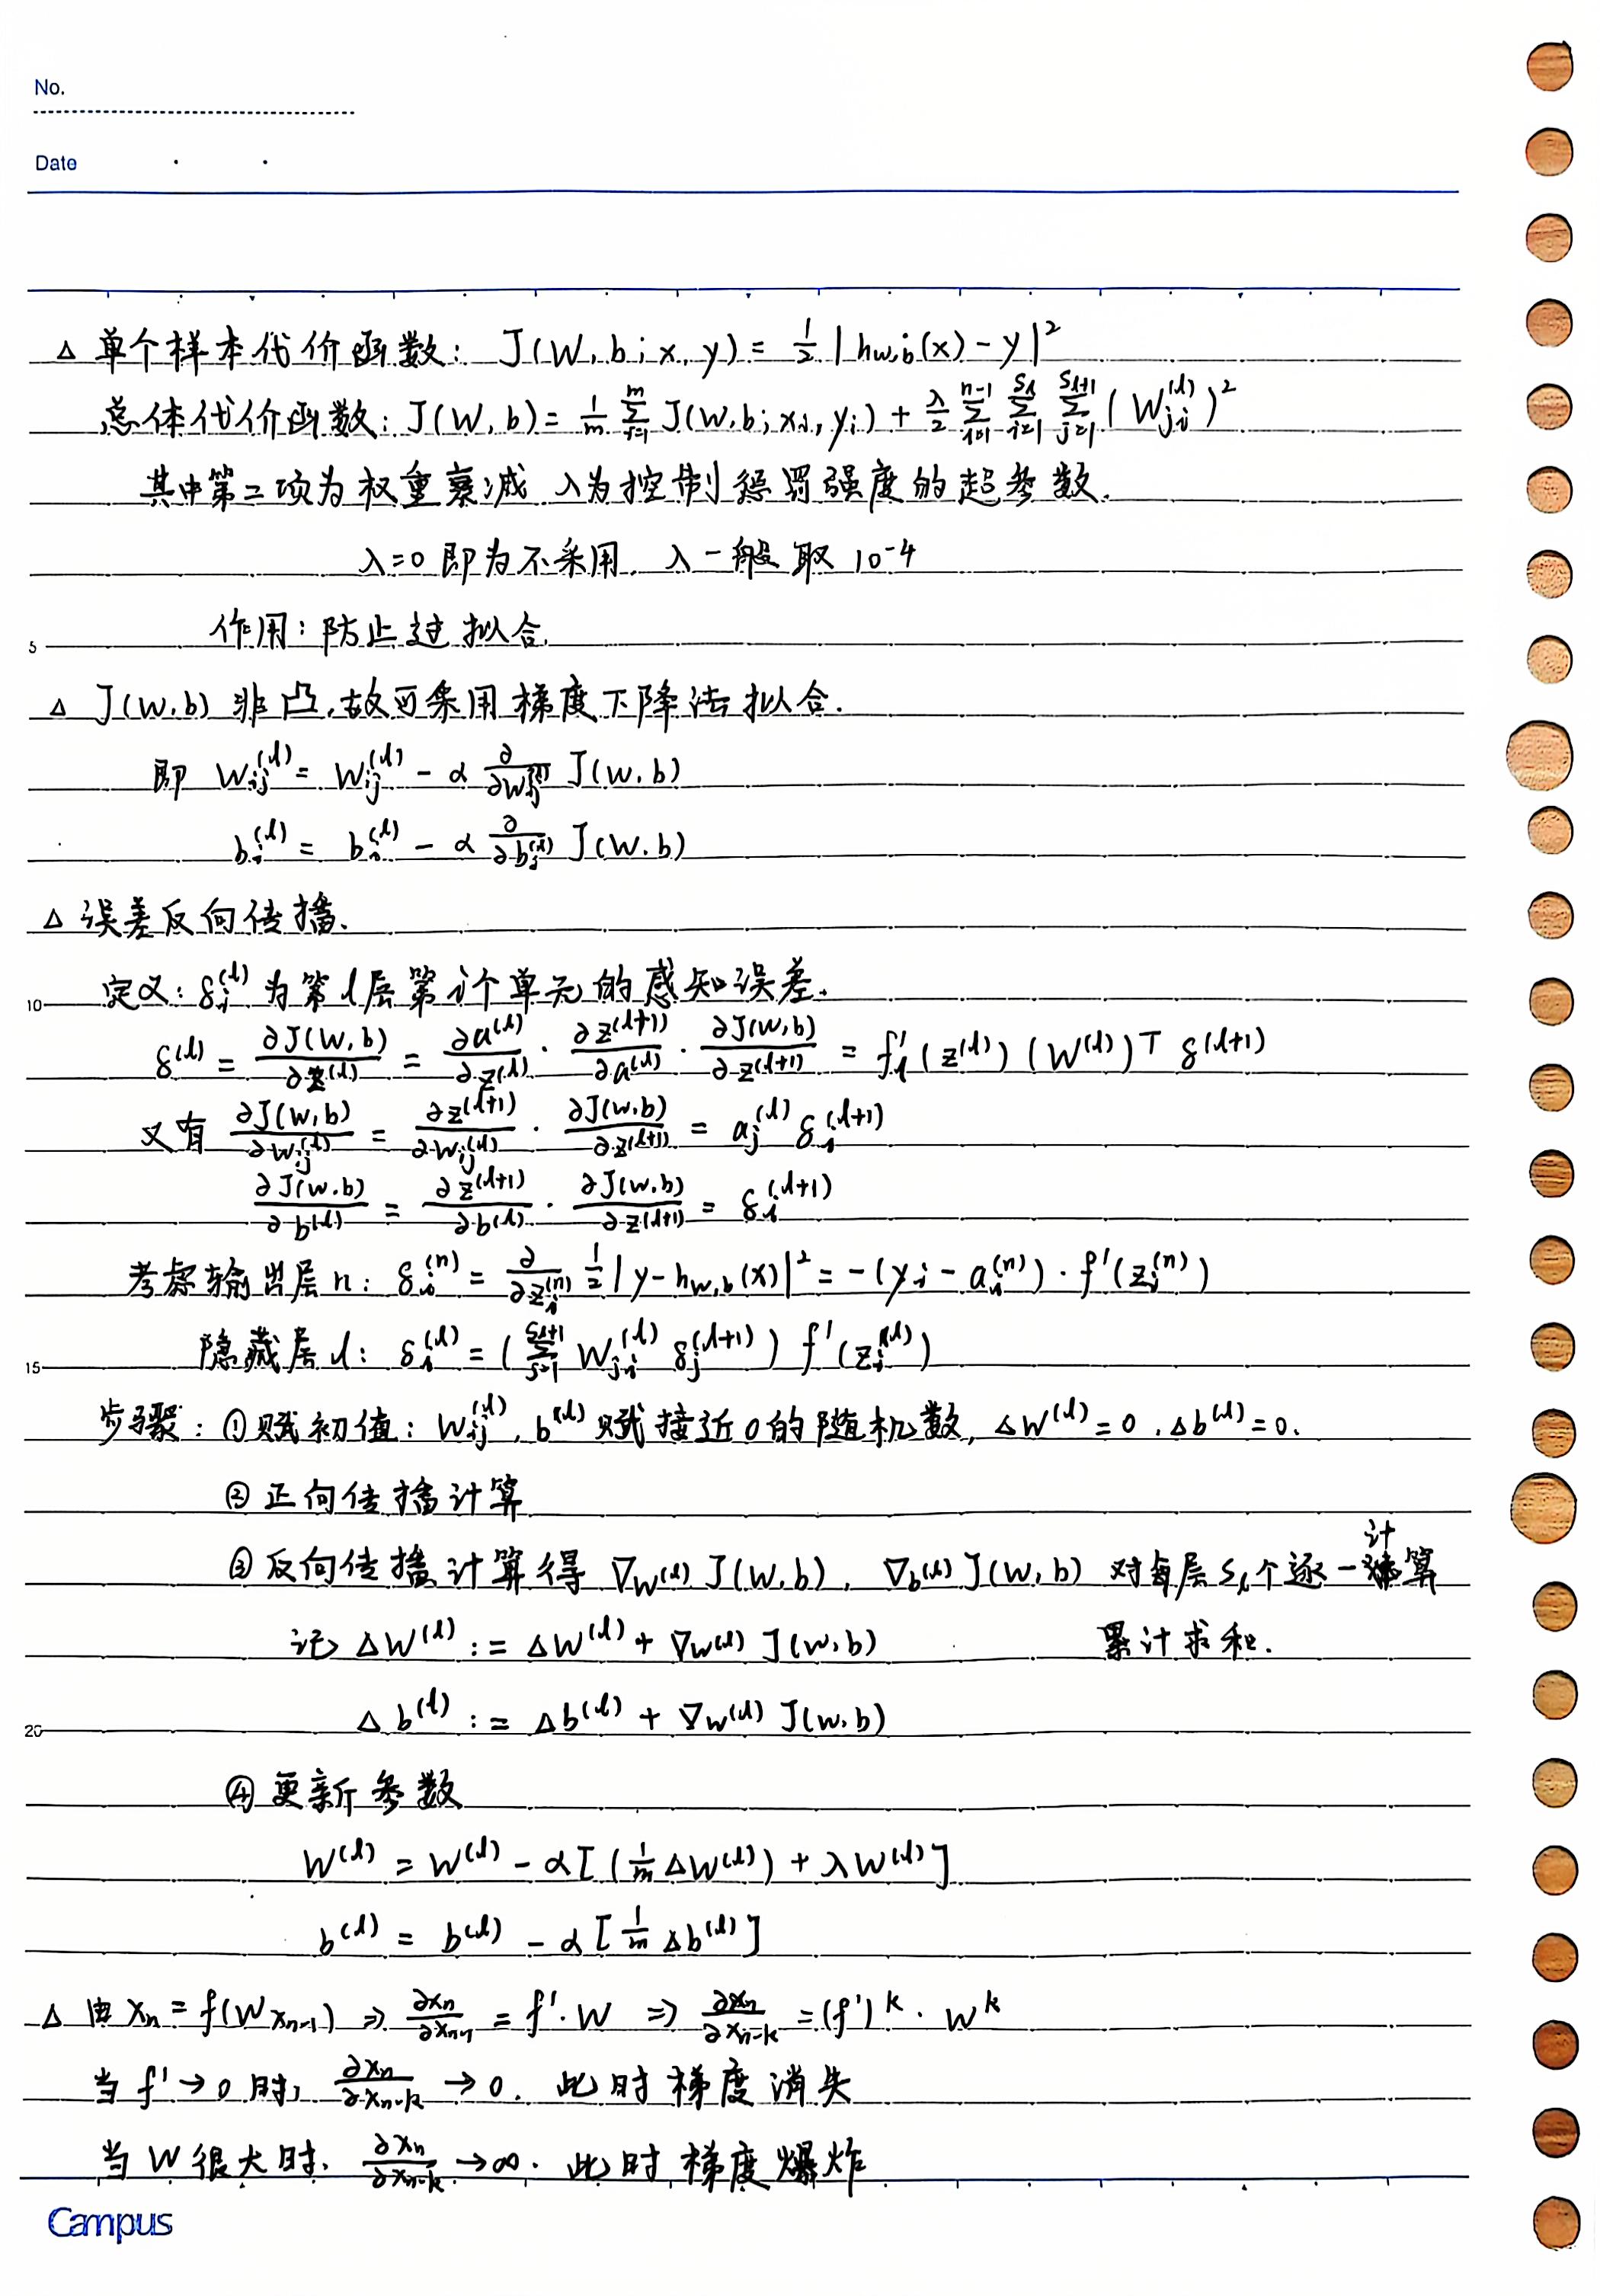 No.
Date
△ 单个样本代价函数: J(W,b;x,y) = 1/2 |h_{W,b}(x) - y|^2
总体代价函数: J(W,b) = 1/m ∑_{i=1}^{m} J(W,b;x_i,y_i) + λ/2 ∑_{l=1}^{n-1} ∑_{i=1}^{S_l} ∑_{j=1}^{S_{l+1}} (W_{ji}^{(l)})^2
其中第二项为权重衰减 λ为控制惩罚强度的超参数.
λ=0 即为不采用, λ一般取 10^{-4}
5 作用: 防止过拟合.
△ J(W,b) 非凸,故可采用梯度下降法拟合.
即 W_{ij}^{(l)} = W_{ij}^{(l)} - α ∂/∂W_{ij}^{(l)} J(W,b)
b_i^{(l)} = b_i^{(l)} - α ∂/∂b_i^{(l)} J(W,b)
△ 误差反向传播.
10 定义: δ_i^{(l)} 为第l层第i个单元的感知误差.
δ^{(l)} = ∂J(W,b)/∂z^{(l)} = ∂a^{(l)}/∂z^{(l)} · ∂z^{(l+1)}/∂a^{(l)} · ∂J(W,b)/∂z^{(l+1)} = f'_l(z^{(l)}) (W^{(l)})^T δ^{(l+1)}
又有 ∂J(W,b)/∂W_{ij}^{(l)} = ∂z^{(l+1)}/∂W_{ij}^{(l)} · ∂J(W,b)/∂z^{(l+1)} = a_j^{(l)} δ_i^{(l+1)}
∂J(W,b)/∂b^{(l)} = ∂z^{(l+1)}/∂b^{(l)} · ∂J(W,b)/∂z^{(l+1)} = δ_i^{(l+1)}
考虑输出层n: δ_i^{(n)} = ∂/∂z_i^{(n)} 1/2 |y - h_{W,b}(x)|^2 = -(y_i - a_i^{(n)}) · f'(z_i^{(n)})
15 隐藏层l: δ_i^{(l)} = (∑_{j=1}^{S_{l+1}} W_{ji}^{(l)} δ_j^{(l+1)}) f'(z_i^{(l)})
步骤: ①赋初值: W_{ij}^{(l)}, b^{(l)} 赋接近0的随机数, △W^{(l)}=0, △b^{(l)}=0.
② 正向传播计算
③ 反向传播计算得 ∇_{W^{(l)}} J(W,b), ∇_{b^{(l)}} J(W,b) 对每层S_l个逐一计算
记 △W^{(l)} := △W^{(l)} + ∇_{W^{(l)}} J(W,b) 累计求和.
20 △b^{(l)} := △b^{(l)} + ∇_{W^{(l)}} J(W,b)
④ 更新参数
W^{(l)} = W^{(l)} - α[(1/m △W^{(l)}) + λW^{(l)}]
b^{(l)} = b^{(l)} - α[1/m △b^{(l)}]
△ 由 x_n = f(W x_{n-1}) ⇒ ∂x_n/∂x_{n-1} = f'·W ⇒ ∂x_n/∂x_{n-k} = (f')^k · W^k
当 f'→0 时, ∂x_n/∂x_{n-k} →0. 此时梯度消失
当 W 很大时, ∂x_n/∂x_{n-k} →∞. 此时梯度爆炸
Campus